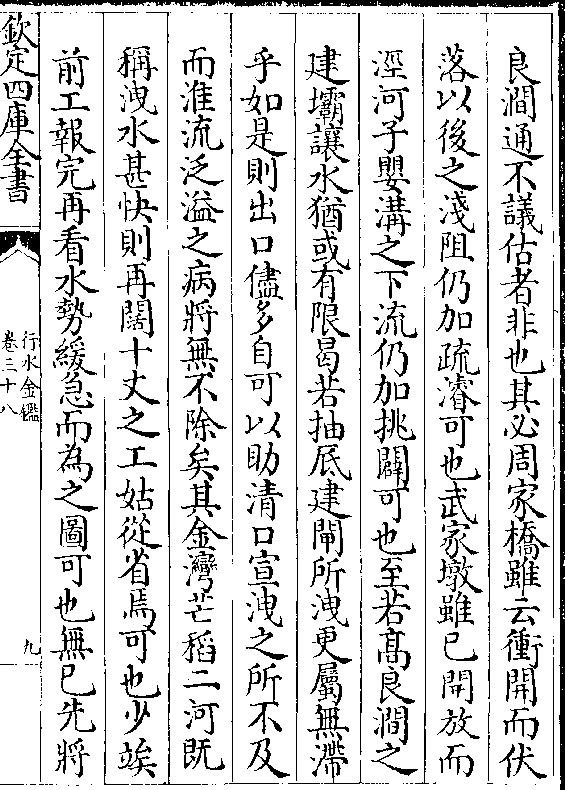 良澗通不議估者非也其必周家橋雖云衝開而伏
落以後之淺阻仍加疏濬可也武家墩雖已開放而
涇河子嬰溝之下流仍加挑闢可也至若高良澗之
建壩讓水猶或有限曷若抽底建閘所洩更屬無滯
乎如是則出口儘多自可以助清口宣洩之所不及
而淮流泛溢之病將無不除矣其金灣芒稻二河既
稱洩水甚快則再闊十丈之工姑從省焉可也少竢
前工報完再看水勢緩急而為之圖可也無已先將
欽定四庫全書
行水金鑑
卷三十八
九